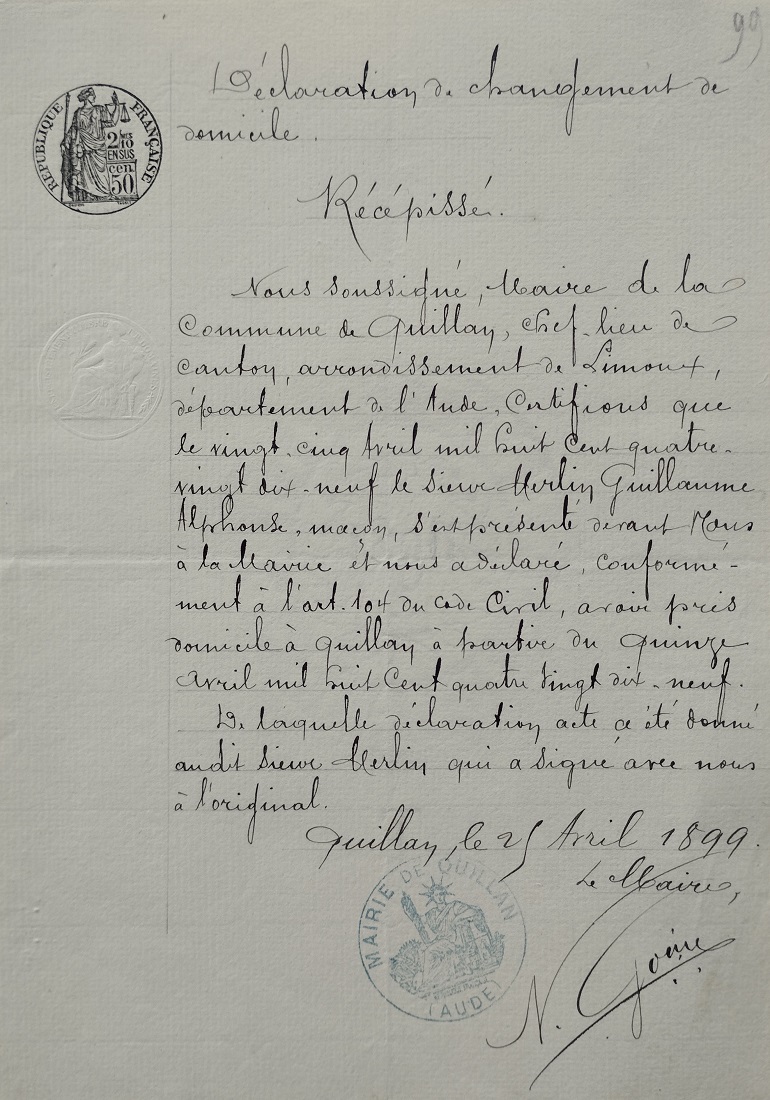 99
Déclaration de changement de
domicile.
RÉPUBLIQUE FRANÇAISE
2/10
EN SUS
cen.
50
Récépissé.
Nous soussigné, Maire de la
Commune de Quillan, chef-lieu de
canton, arrondissement de Limoux,
département de l'Aude, Certifions que
le vingt-cinq Avril mil huit Cent quatre-
vingt dix-neuf le sieur Merlin Guillaume
Alphonse, maçon, s'est présenté devant Nous
à la Mairie et nous a déclaré, conformé-
ment à l'art. 104 du code Civil, avoir pris
domicile à Quillan à partir du quinze
Avril mil huit Cent quatre Vingt dix-neuf.
De laquelle déclaration acte a été donné
audit sieur Merlin qui a signé avec nous
à l'original.
Quillan, le 25 Avril 1899.
Le Maire,
MAIRIE DE QUILLAN
(AUDE)
N.